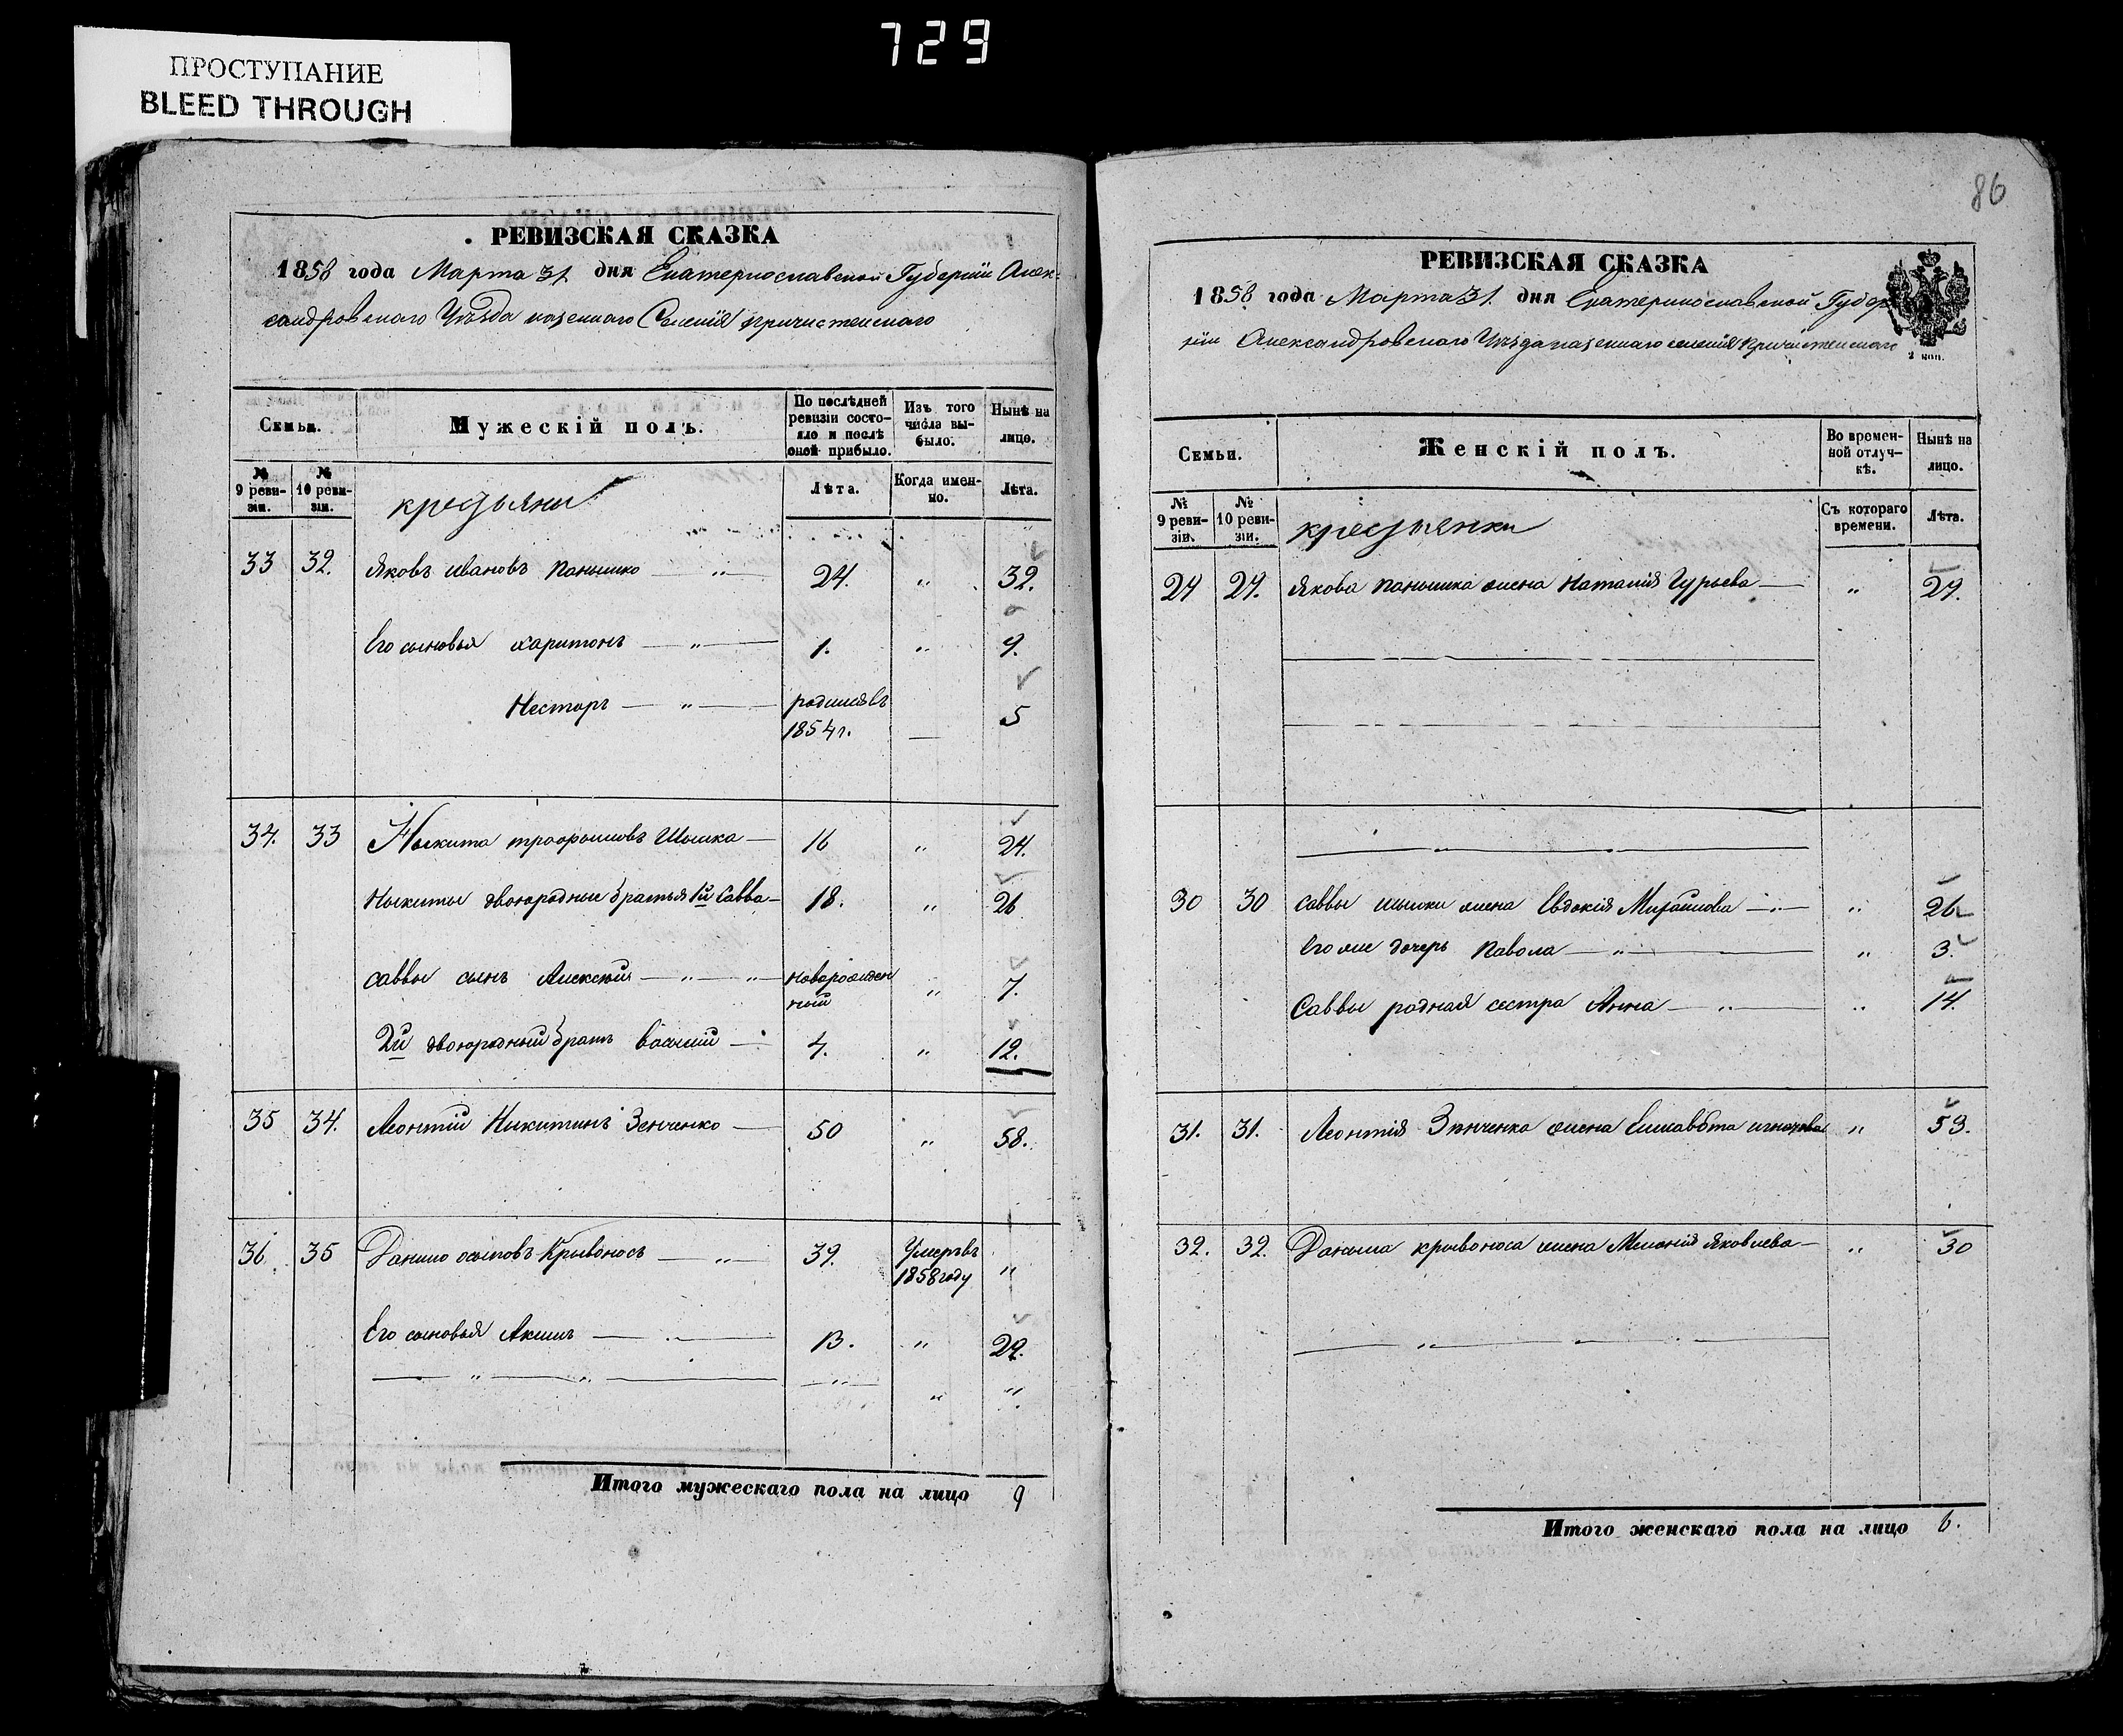 729
ПРОСТУПАНИЕ
BLEED THROUGH
86
РЕВИЗСКАЯ СКАЗКА
1858 года Марта 31 дня Екатеринославской Губернiи Алек-
сандровскаго Уѣзда казеннаго Селенiя пречистенскаго
Семьи.
Мужескiй полъ.
По послѣдней ревизiи состо-яло и послѣ оной прибыло.
Изъ того числа вы-было.
Нынѣ на лицо.
№ 9 реви-зiи.
№ 10 реви-зiи.
крестьяни
Лѣта.
Когда имен-но.
Лѣта.
33 32. Яковъ ивановъ Панышко — " — 24. " 32.
Его сыновья харитонъ — " — 1. " 9.
Несторъ — " — родился въ 1854 г. — 5
34. 33 Ныкита трофымовъ Шышка — 16 " 24.
Ныкиты двоюродные братья 1й Савва — 18. " 26
саввы сынъ Алексѣй — " — " — новорожден ный " 7.
2й двоюродный братъ Василiй — 4. " 12.
35 34. Леонтiй Ныкитинъ Зенченко — 50 " 58.
36 35 Данило осыповъ Крывоносъ — " — 39. Умеръ въ 1858 году "
Его сыновья Акимъ — 13. "
Итого мужескаго пола на лицо 9
РЕВИЗСКАЯ СКАЗКА
1858 года Марта 31. дня Екатеринославской Губер
нiи Александровскаго Уѣзда казеннаго селенiя Пречистенскаго
2 коп.
Семьи.
Женскiй полъ.
Во времен-ной отлуч-кѣ.
Нынѣ на лицо.
№ 9 реви-зiи.
№ 10 реви-зiи.
крестьянки
Съ котораго времени.
Лѣта.
Якова Панышка жена Наталiя Гурьева — "
30 30 саввы шышки жена Евдокiя — " — " 26
Его же дочерь Павола — " — " 3.
Саввы родная сестра Анна — " — " 14.
31. 31. Леонтiя Зенченка жена Елисавѣта "
32. 32. Данила крывоноса жена Меланiя Яковлева — " 30
Итого женскаго пола на лицо 6.